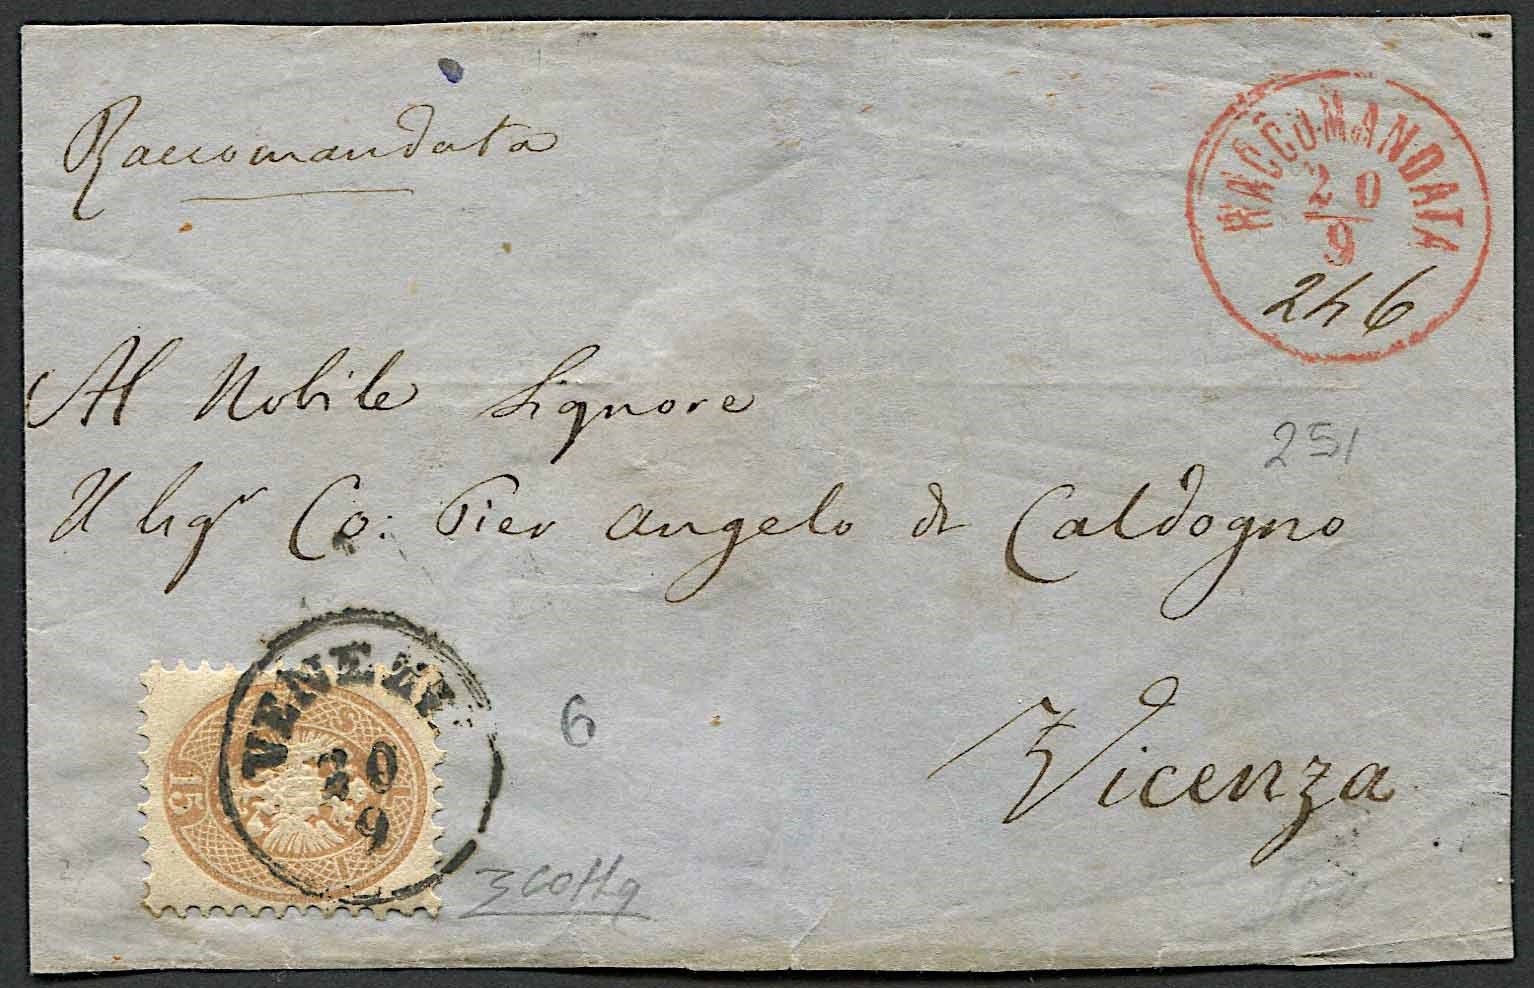 Raccomandata
RACCOMANDATA
20
9
246
Al Nobile Signore
Il Sigr Co: Pier Angelo di Caldogno
251
Vicenza
VENEZIA
20
9
15
6